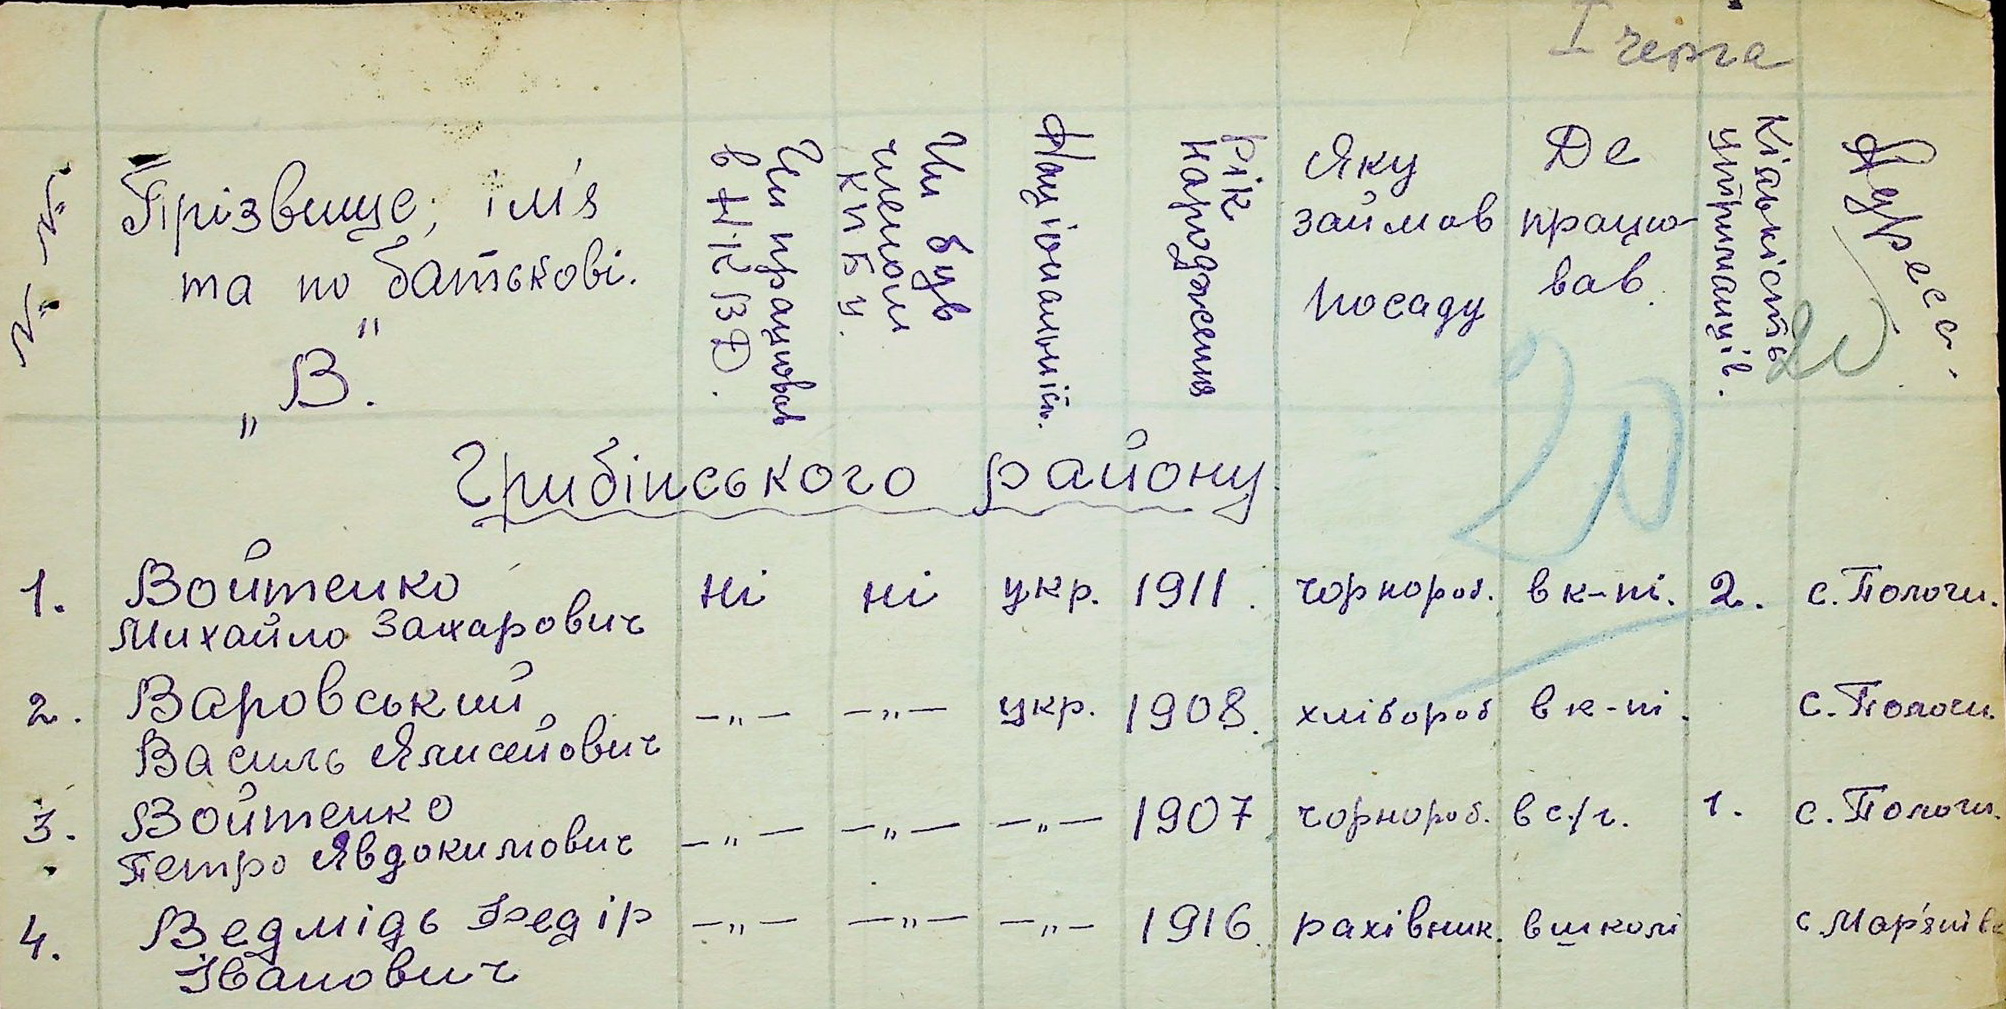 І черга
№ №
Прізвище, ім'я
та по батькові.
"В."
Чи працював
в НКВД.
Чи був
членом
КПБУ.
Національність.
рік
народження
Яку
займав
посаду
Де
працю-
вав.
Кількість
утриманців.
Адреса.
20
20
Грибінського району
1. Войтенко ні ні укр. 1911. чорнороб. в к-пі. 2. с. Пологи.
Михайло Захарович
2. Варовський -"- -"- укр. 1908. хлібороб в к-пі. с. Пологи.
Василь Ялисейович
3. Войтенко -"- -"- -"- 1907 чорнороб. в с/г. 1. с. Пологи.
Петро Явдокимович
4. Ведмідь Федір -"- -"- -"- 1916. рахівник. в школі с. Мар'янівка
Іванович